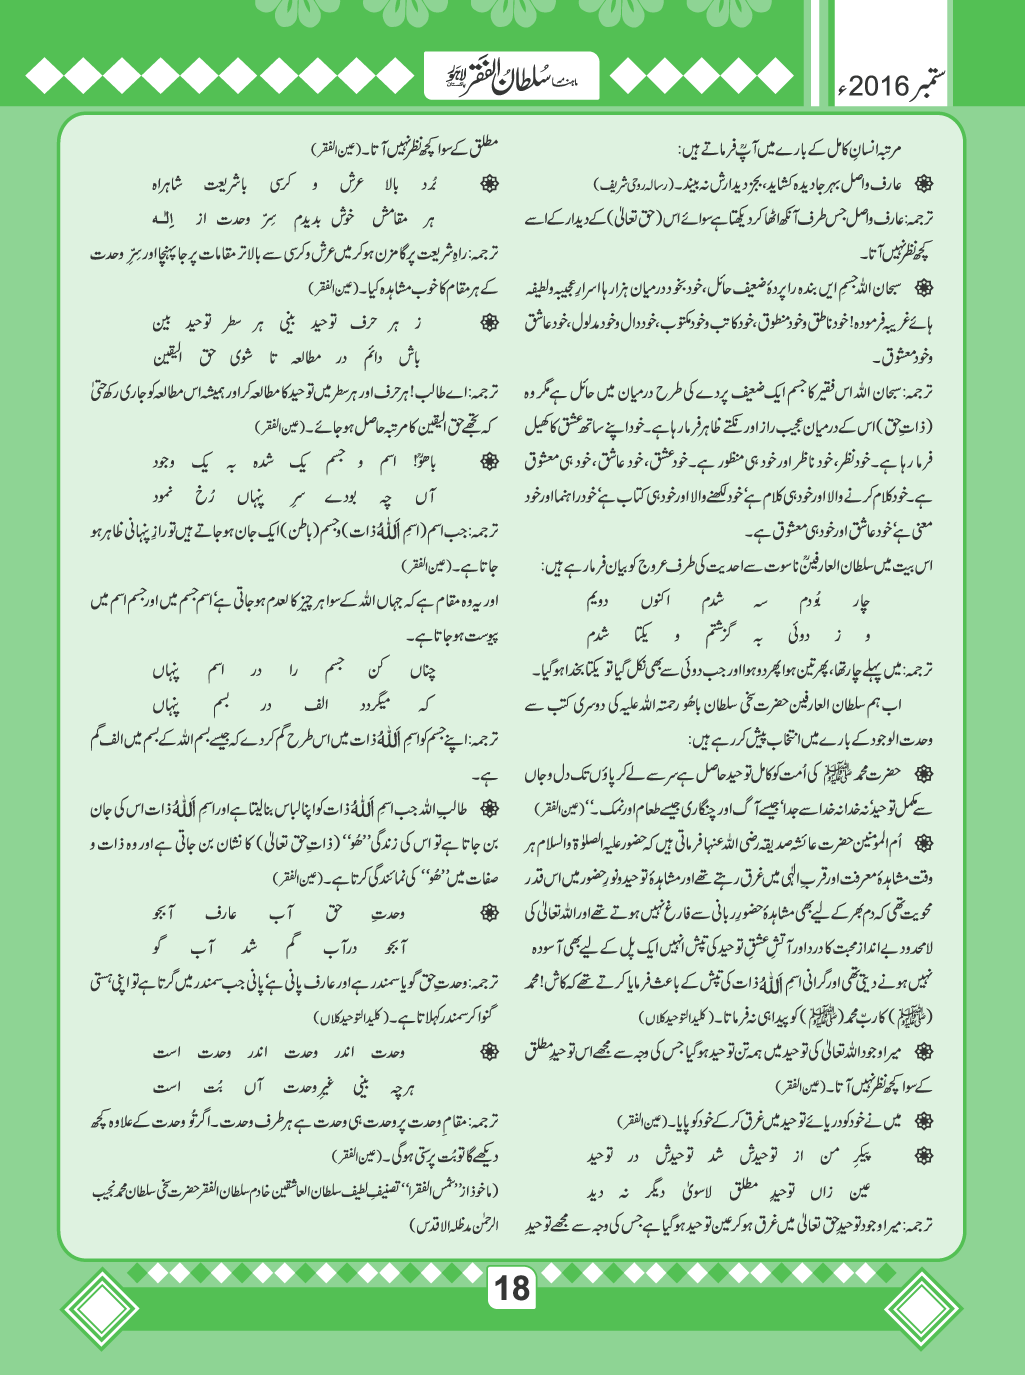 ماہنامہ سُلطان الفقر لاہور
ستمبر 2016ء
مرتبہ انسانِ کامل کے بارے میں آپؒ فرماتے ہیں:
عارف واصل بہر جا دیدہ کشاید، بجز دیدارش نہ بیند۔ (رسالہ روحی شریف)
ترجمہ: عارف واصل جس طرف آنکھ اٹھا کر دیکھتا ہے سوائے اس (حق تعالیٰ) کے دیدار کے اسے
کچھ نظر نہیں آتا۔
سبحان اللہ جسمِ ایں بندہ را پردۂ ضعیف حائل، خود بخود درمیان ہزارہا اسرارِ عجیبہ ولطیفہ
ہائے غریبہ فرمودہ! خود ناطق وخود منطوق، خود کاتب وخود مکتوب، خود دال وخود مدلول، خود عاشق
وخود معشوق۔
ترجمہ: سبحان اللہ اس فقیر کا جسم ایک ضعیف پردے کی طرح درمیان میں حائل ہے مگر وہ
(ذاتِ حق) اس کے درمیان عجیب راز اور نکتے ظاہر فرما رہا ہے۔ خود اپنے ساتھ عشق کا کھیل
فرما رہا ہے۔ خود نظر، خود ناظر اور خود ہی منظور ہے۔ خود عشق، خود عاشق، خود ہی معشوق
ہے۔ خود کلام کرنے والا اور خود ہی کلام ہے‘ خود لکھنے والا اور خود ہی کتاب ہے‘ خود راہنما اور خود
معنی ہے‘ خود عاشق اور خود ہی معشوق ہے۔
اس بیت میں سلطان العارفینؒ ناسوت سے احدیت کی طرف عروج کو بیان فرما رہے ہیں:
چار بُودم سہ شدم اکنوں دویم
و ز دوئی بہ گزشتم و یکتا شدم
ترجمہ: میں پہلے چار تھا، پھر تین ہوا پھر دو ہوا اور جب دوئی سے بھی نکل گیا تو یکتا بخدا ہوگیا۔
اب ہم سلطان العارفین حضرت سخی سلطان باھُو رحمتہ اللہ علیہ کی دوسری کتب سے
وحدت الوجود کے بارے میں انتخاب پیش کر رہے ہیں:
حضرت محمد ﷺ کی اُمت کو کامل توحید حاصل ہے سر سے لے کر پاؤں تک دل وجاں
سے مکمل توحید‘ نہ خدا نہ خدا سے جدا‘ جیسے آگ اور چنگاری جیسے طعام اور نمک۔‘‘ (عین الفقر)
اُم المومنین حضرت عائشہ صدیقہ رضی اللہ عنہا فرماتی ہیں کہ حضور علیہ الصلوٰۃ والسلام ہر
وقت مشاہدۂ معرفت اور قربِ الٰہی میں غرق رہتے تھے اور مشاہدۂ توحید ونورِ حضور میں اس قدر
محویت تھی کہ دم بھر کے لیے بھی مشاہدۂ حضورِ ربانی سے فارغ نہیں ہوتے تھے اور اللہ تعالیٰ کی
لامحدود بے انداز محبت کا درد اور آتشِ عشقِ توحید کی تپش انہیں ایک پل کے لیے بھی آسودہ
نہیں ہونے دیتی تھی اور گرانی اسمِ اَللّٰهُ ذات کی تپش کے باعث فرمایا کرتے تھے کہ کاش! محمد
(ﷺ) کا ربّ محمد (ﷺ) کو پیدا ہی نہ فرماتا۔ (کلید التوحید کلاں)
میرا وجود اللہ تعالیٰ کی توحید میں ہمہ تن توحید ہوگیا جس کی وجہ سے مجھے اس توحیدِ مطلق
کے سوا کچھ نظر نہیں آتا۔ (عین الفقر)
میں نے خود کو دریائے توحید میں غرق کر کے خود کو پایا۔ (عین الفقر)
پیکرِ من از توحیدش شد توحیدش در توحید
عین زاں توحیدِ مطلق لاسویٰ دیگر نہ دید
ترجمہ: میرا وجود توحیدِ حق تعالیٰ میں غرق ہو کر عین توحید ہوگیا ہے جس کی وجہ سے مجھے توحیدِ
مطلق کے سوا کچھ نظر نہیں آتا۔ (عین الفقر)
بُرد بالا عرش و کرسی باشریعت شاہراہ
ہر مقامش خوش بدیدم سِرّ وحدت از اِلٰـہ
ترجمہ: راہِ شریعت پر گامزن ہو کر میں عرش وکرسی سے بالاتر مقامات پر جا پہنچا اور سِرِّ وحدت
کے ہر مقام کا خوب مشاہدہ کیا۔ (عین الفقر)
ز ہر حرف توحید بینی ہر سطر توحید بین
باش دائم در مطالعہ تا شوی حق الیقین
ترجمہ: اے طالب! ہر حرف اور ہر سطر میں توحید کا مطالعہ کر اور ہمیشہ اس مطالعہ کو جاری رکھ حتیٰ
کہ تجھے حق الیقین کا مرتبہ حاصل ہو جائے۔ (عین الفقر)
باھُوؒ! اسم و جسم یک شدہ بہ یک وجود
آں چہ بودے سرِ پنہاں رُخ نمود
ترجمہ: جب اسم (اسمِ اَللّٰهُ ذات) وجسم (باطن) ایک جان ہو جاتے ہیں تو رازِ پنہانی ظاہر ہو
جاتا ہے۔ (عین الفقر)
اور یہ وہ مقام ہے کہ جہاں اللہ کے سوا ہر چیز کالعدم ہو جاتی ہے‘ اسم جسم میں اور جسم اسم میں
پیوست ہو جاتا ہے۔
چناں کن جسم را در اسم پنہاں
کہ میگردد الف در بسم پنہاں
ترجمہ: اپنے جسم کو اسمِ اَللّٰهُ ذات میں اس طرح گم کر دے کہ جیسے بسم اللہ کے بسم میں الف گم
ہے۔
طالبِ اللہ جب اسمِ اَللّٰهُ ذات کو اپنا لباس بنا لیتا ہے اور اسمِ اَللّٰهُ ذات اس کی جان
بن جاتا ہے تو اس کی زندگی ’’ھُو‘‘ (ذاتِ حق تعالیٰ) کا نشان بن جاتی ہے اور وہ ذات و
صفات میں ’’ھُو‘‘ کی نمائندگی کرتا ہے۔ (عین الفقر)
وحدتِ حق آب عارف آبجو
آبجو درآب گم شد آب گو
ترجمہ: وحدتِ حق گویا سمندر ہے اور عارف پانی ہے‘ پانی جب سمندر میں گرتا ہے تو اپنی ہستی
گنوا کر سمندر کہلاتا ہے۔ (کلید التوحید کلاں)
وحدت اندر وحدت اندر وحدت است
ہرچہ بینی غیر وحدت آں بُت است
ترجمہ: مقامِ وحدت پر وحدت ہی وحدت ہے ہر طرف وحدت۔ اگر تُو وحدت کے علاوہ کچھ
دیکھے گا تو بُت پرستی ہوگی۔ (عین الفقر)
(ماخوذ از ’’شمس الفقرا‘‘ تصنیفِ لطیف سلطان العاشقین خادم سلطان الفقر حضرت سخی سلطان محمد نجیب
الرحمٰن مدظلہ الاقدس)
18